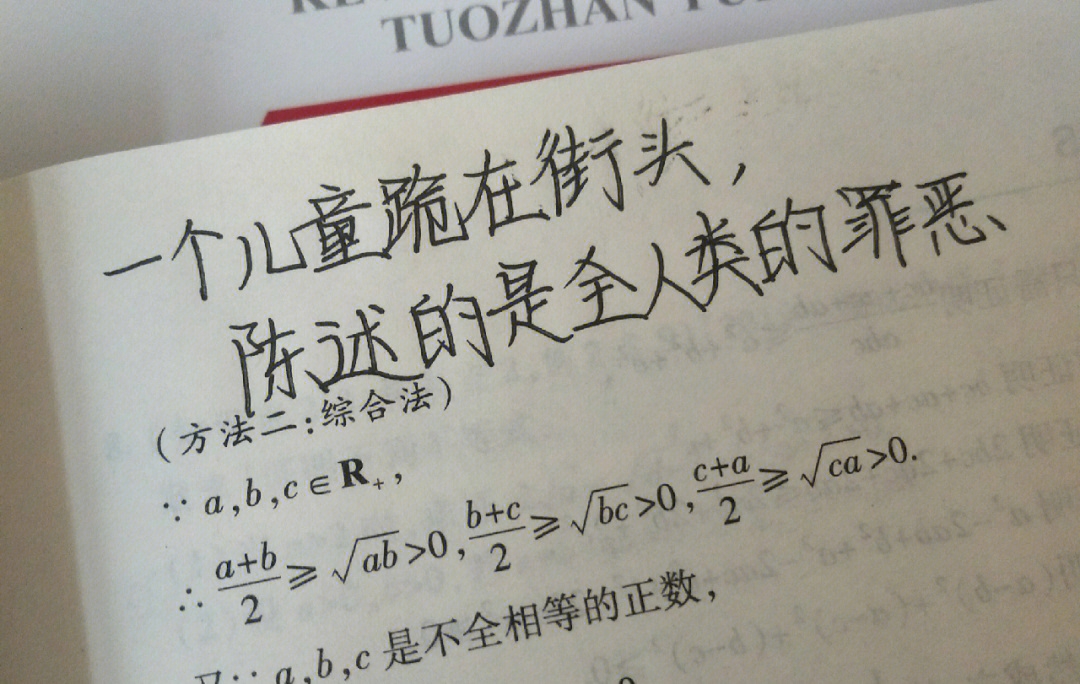 TUOZHAN
一个儿童跪在街头，
陈述的是全人类的罪恶
(方法二:综合法)
∵a,b,c∈R₊,
∴(a+b)/2≥√ab>0,(b+c)/2≥√bc>0,(c+a)/2≥√ca>0.
又∵a,b,c是不全相等的正数,